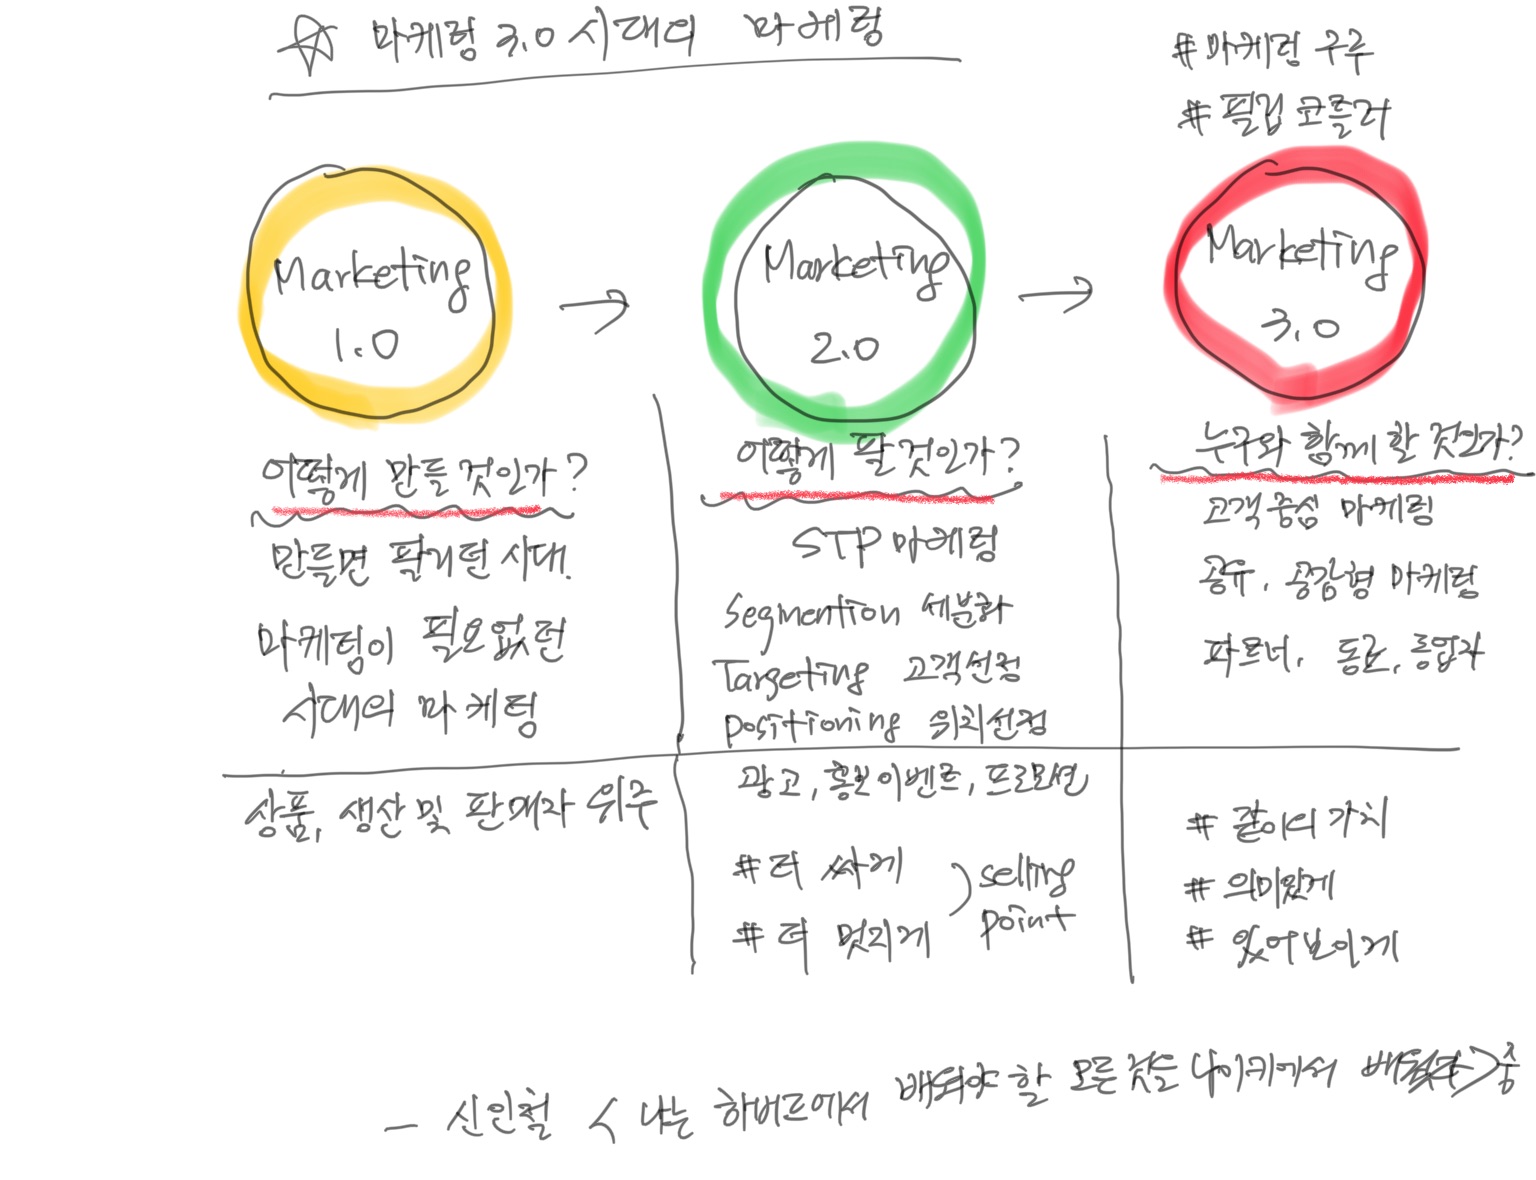 ☆ 마케팅 3.0 시대의 마케팅
# 마케팅 구루
# 필립 코틀러
Marketing
1.0
→
Marketing
2.0
→
Marketing
3.0
어떻게 만들 것인가?
만들면 팔리던 시대.
마케팅이 필요없던
시대의 마케팅
상품, 생산 및 판매자 위주
어떻게 팔 것인가?
STP 마케팅
Segmention 세분화
Targeting 고객선정
positioning 위치선정
광고, 홍보이벤트, 프로모션
# 더 싸게
# 더 멋지게
selling
point
누구와 함께 할 것인가?
고객중심 마케팅
공유, 공감형 마케팅
파트너, 동료, 동업자
# 같이의 가치
# 의미있게
# 있어보이게
- 신인철 < 나는 하버드에서 배워야 할 모든 것을 나이키에서 배웠다> 중